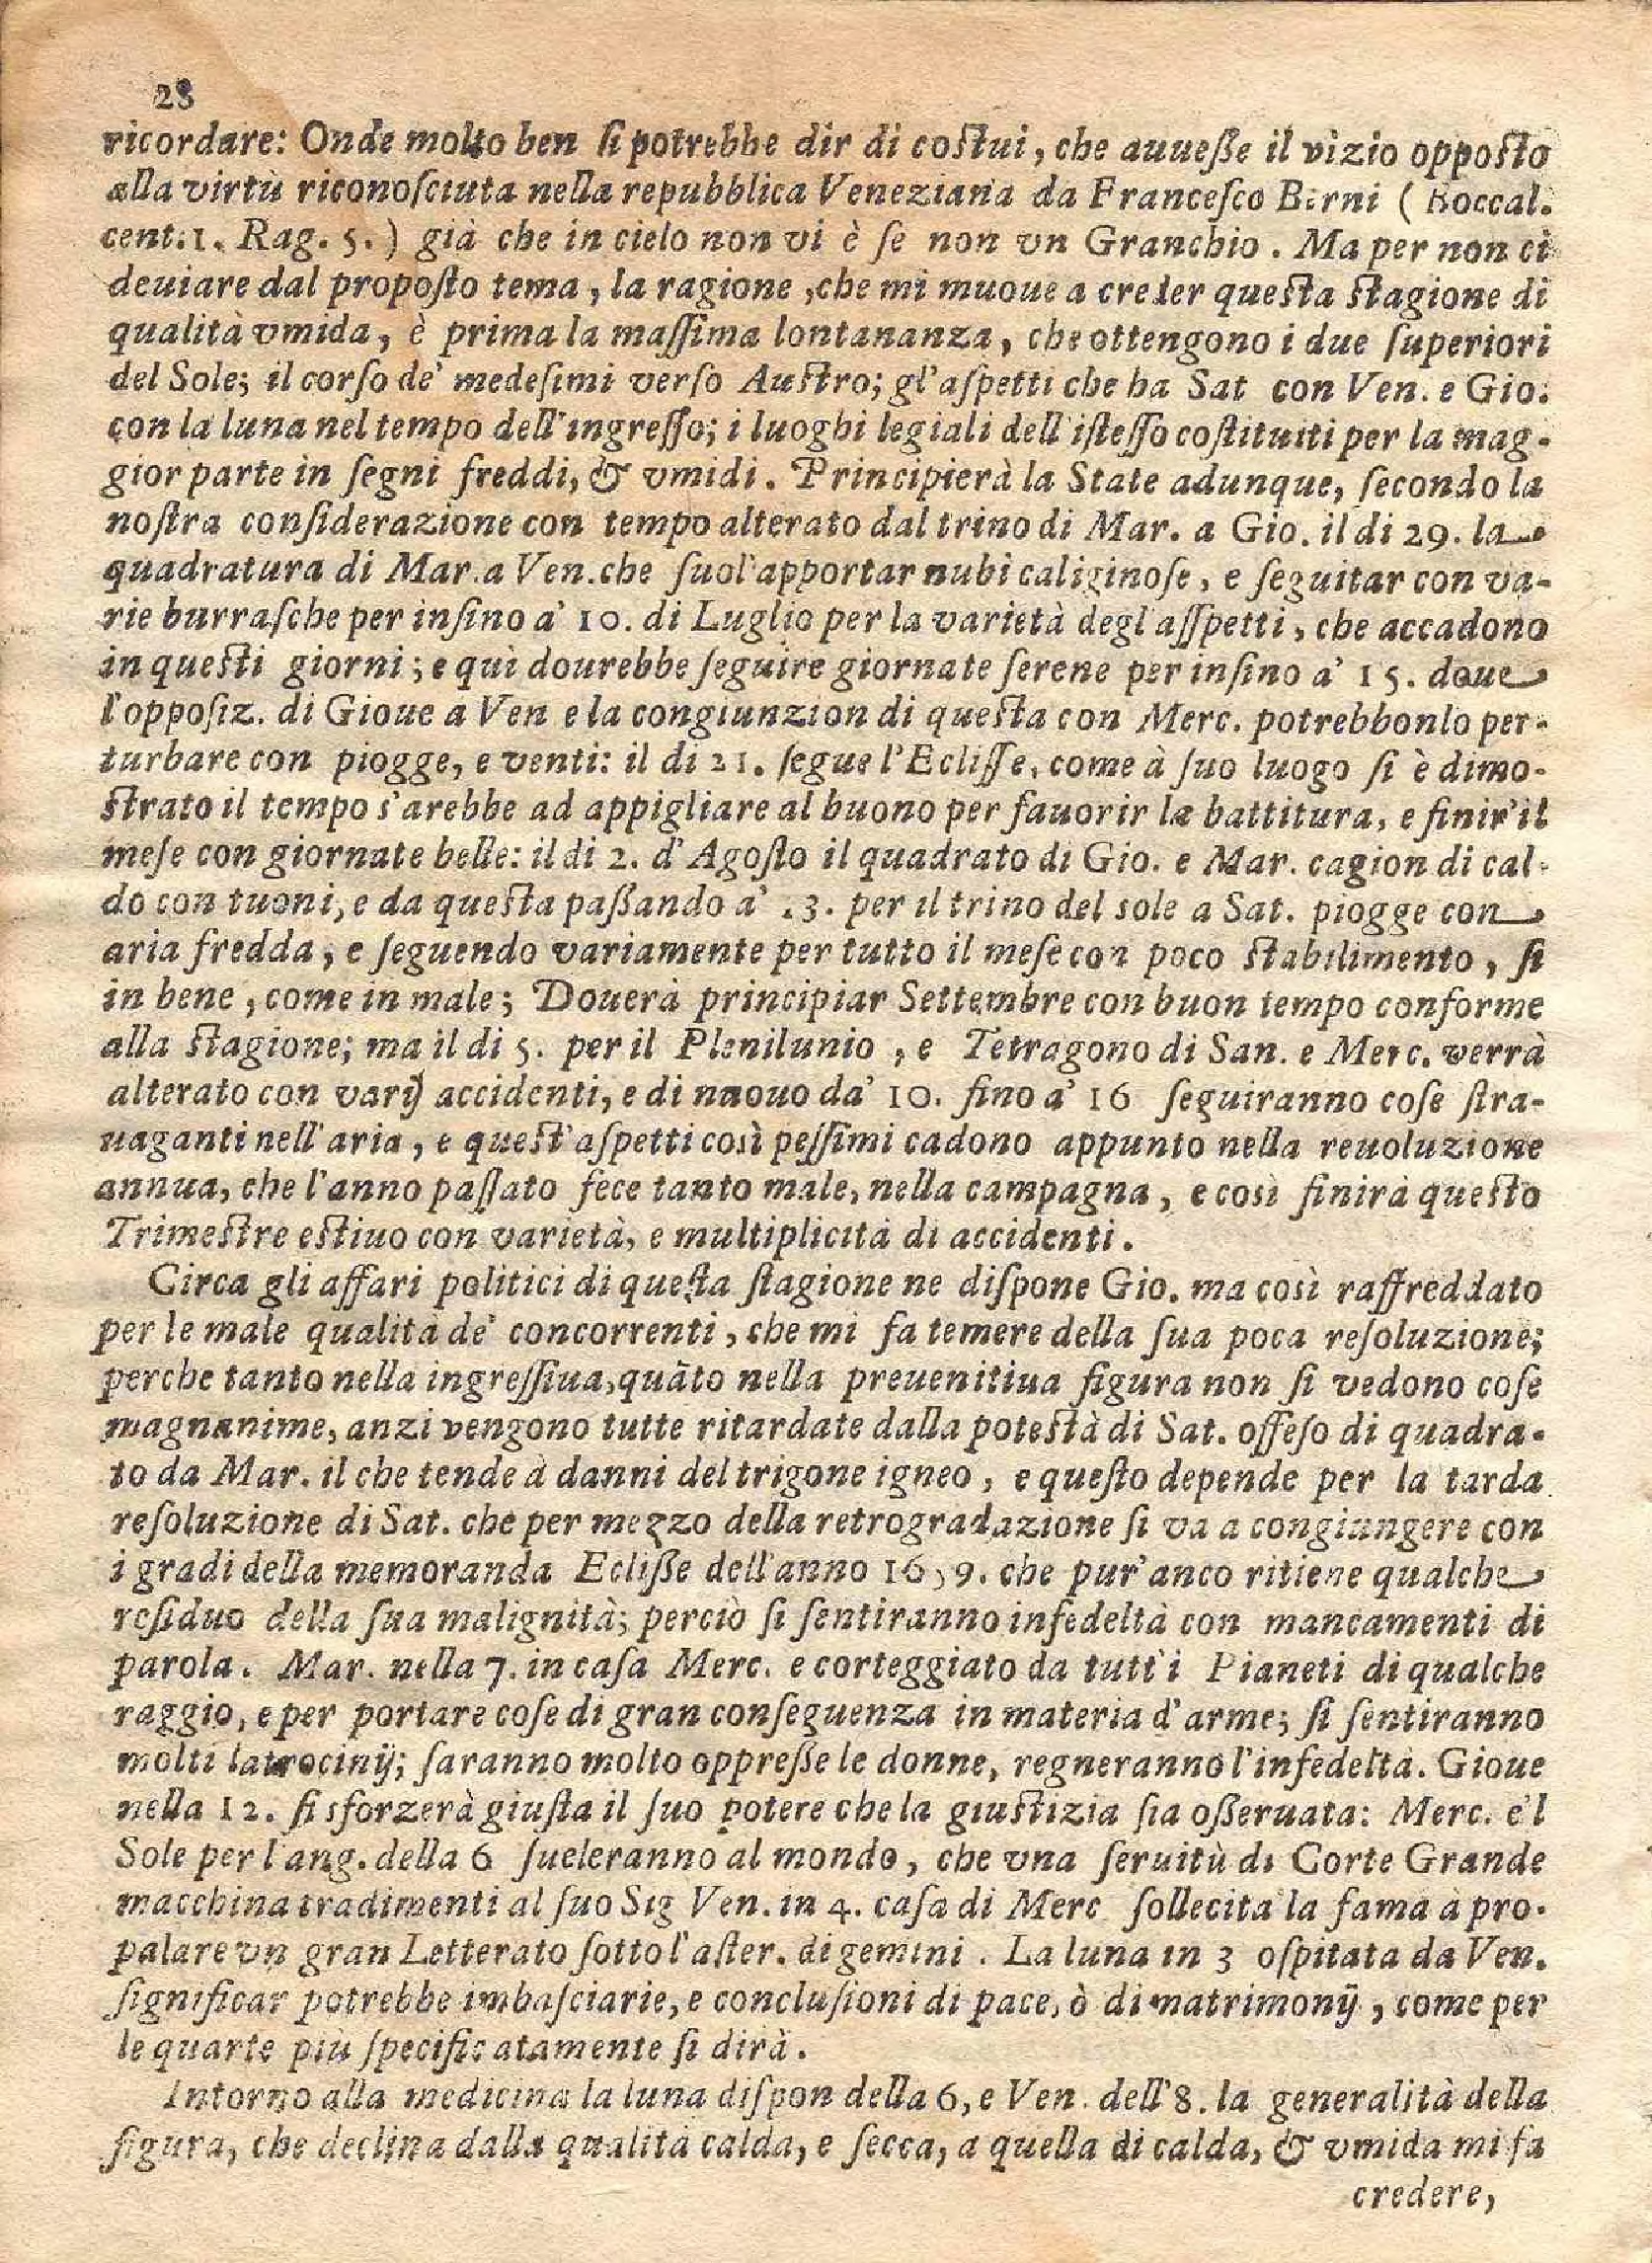 28
ricordare: Onde molto ben ſi potrebbe dir di coſtui, che auueſſe il vizio oppoſto
alla virtù riconoſciuta nella repubblica Veneziana da Franceſco Berni ( Boccal.
cent. 1. Rag. 5. ) già che in cielo non vi è ſe non vn Granchio. Ma per non ci
deuiare dal propoſto tema, la ragione, che mi muoue a creder queſta ſtagione di
qualità vmida, è prima la maſſima lontananza, che ottengono i due ſuperiori
del Sole; il corſo de' medeſimi verſo Auſtro; gl'aſpetti che ha Sat con Ven. e Gio.
con la luna nel tempo dell'ingreſſo; i luoghi legiali dell'iſteſſo coſtituiti per la mag-
gior parte in ſegni freddi, & vmidi. Principierà la State adunque, ſecondo la
noſtra conſiderazione con tempo alterato dal trino di Mar. a Gio. il di 29. la
quadratura di Mar. a Ven. che ſuol'apportar nubi caliginoſe, e ſeguitar con va-
rie burraſche per inſino a' 10. di Luglio per la varietà degl'aſſpetti, che accadono
in queſti giorni; e quì dourebbe ſeguire giornate ſerene per inſino a' 15. doue
l'oppoſiz. di Gioue a Ven e la congiunzion di queſta con Merc. potrebbonlo per-
turbare con piogge, e venti: il di 21. ſegue l'Ecliſſe, come à ſuo luogo ſi è dimo-
ſtrato il tempo s'arebbe ad appigliare al buono per fauorir la battitura, e finir'il
meſe con giornate belle: il di 2. d'Agoſto il quadrato di Gio. e Mar. cagion di cal-
do con tuoni, e da queſta paſſando a' 3. per il trino del sole a Sat. piogge con
aria fredda, e ſeguendo variamente per tutto il meſe con poco ſtabilimento, ſi
in bene, come in male; Douerà principiar Settembre con buon tempo conforme
alla ſtagione; ma il di 5. per il Plenilunio, e Tetragono di San. e Merc. verrà
alterato con varij accidenti, e di nuouo da' 10. fino a' 16 ſeguiranno coſe ſtra-
uaganti nell'aria, e queſt'aſpetti così peſſimi cadono appunto nella reuoluzione
annua, che l'anno paſſato fece tanto male, nella campagna, e così finirà queſto
Trimeſtre eſtiuo con varietà, e multiplicità di accidenti.
Circa gli affari politici di queſta ſtagione ne diſpone Gio. ma così raffreddato
per le male qualità de' concorrenti, che mi fa temere della ſua poca reſoluzione;
perche tanto nella ingreſſiua, quãto nella preuenitiua figura non ſi vedono coſe
magnanime, anzi vengono tutte ritardate dalla poteſtà di Sat. offeſo di quadra-
to da Mar. il che tende à danni del trigone igneo, e queſto depende per la tarda
reſoluzione di Sat. che per mezzo della retrogradazione ſi va a congiungere con
i gradi della memoranda Ecliſſe dell'anno che pur'anco ritiene qualche
reſiduo della ſua malignità; perciò ſi ſentiranno infedeltà con mancamenti di
parola. Mar. nella 7. in caſa Merc. e corteggiato da tutt'i Pianeti di qualche
raggio, e per portare coſe di gran conſeguenza in materia d'arme; ſi ſentiranno
molti latrocinij; ſaranno molto oppreſſe le donne, regneranno l'infedeltà. Gioue
nella 12. ſi sforzerà giuſta il ſuo potere che la giuſtizia ſia oſſeruata: Merc. e'l
Sole per l'ang. della 6 ſueleranno al mondo, che vna ſeruitù di Corte Grande
macchina tradimenti al ſuo Sig Ven. in 4. caſa di Merc ſollecita la fama a pro-
palare vn gran Letterato ſotto l'aſter. di gemini. La luna in 3 oſpitata da Ven.
ſignificar potrebbe imbaſciarie, e concluſioni di pace, ò di matrimonij, come per
le quarte più ſpecificatamente ſi dirà.
Intorno alla medicina la luna diſpon della 6, e Ven. dell'8. la generalità della
figura, che declina dalla qualità calda, e ſecca, a quella di calda, & vmida mi fa
credere,